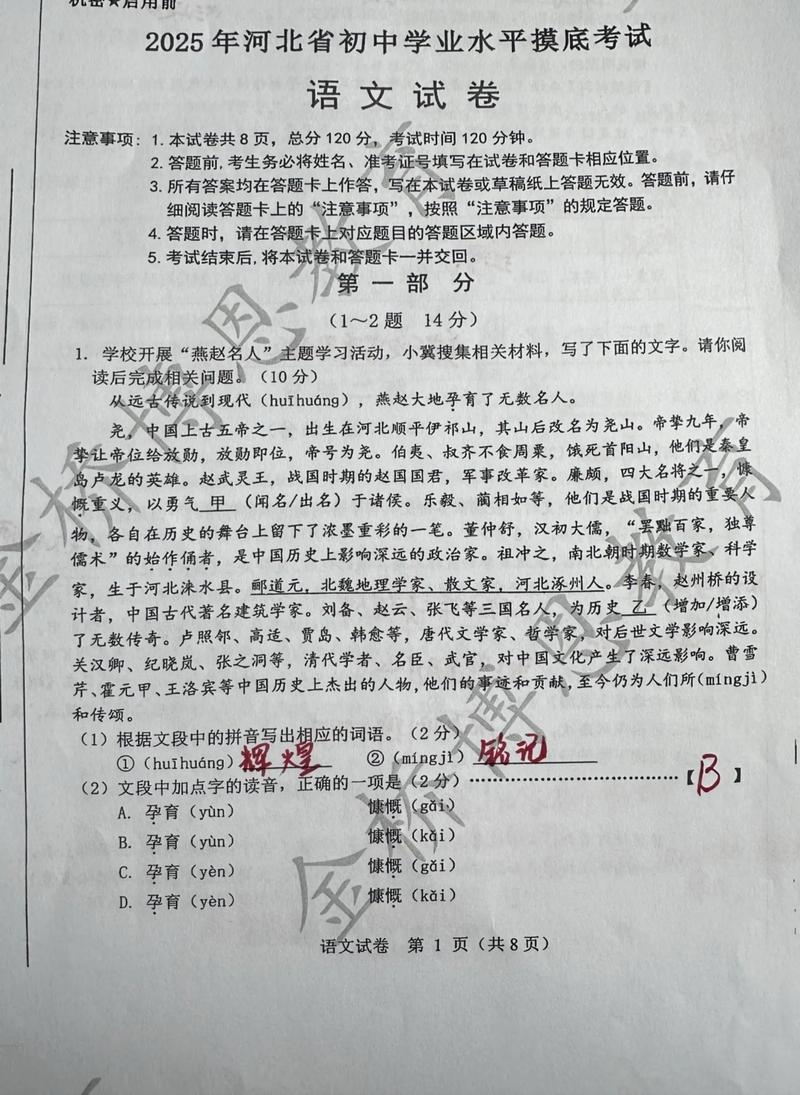 机密★启用前
2025年河北省初中学业水平摸底考试
语文试卷
注意事项：1. 本试卷共8页，总分120分，考试时间120分钟。
2. 答题前,考生务必将姓名、准考证号填写在试卷和答题卡相应位置。
3. 所有答案均在答题卡上作答，写在本试卷或草稿纸上答题无效。答题前，请仔
细阅读答题卡上的“注意事项”，按照“注意事项”的规定答题。
4. 答题时，请在答题卡上对应题目的答题区域内答题。
5. 考试结束后,将本试卷和答题卡一并交回。
第一部 分
（1～2题 14分）
1. 学校开展“燕赵名人”主题学习活动，小冀搜集相关材料，写了下面的文字。请你阅
读后完成相关问题。（10分）
从远古传说到现代（huīhuáng），燕赵大地孕育了无数名人。
尧，中国上古五帝之一，出生在河北顺平伊祁山，其山后改名为尧山。帝挚九年，帝
挚让帝位给放勋，放勋即位，帝号为尧。伯夷、叔齐不食周粟，饿死首阳山，他们是秦皇
岛卢龙的英雄。赵武灵王，战国时期的赵国国君，军事改革家。廉颇，四大名将之一，慷
慨重义，以勇气 甲 （闻名/出名）于诸侯。乐毅、蔺相如等，他们是战国时期的重要人
物，各自在历史的舞台上留下了浓墨重彩的一笔。董仲舒，汉初大儒，“罢黜百家，独尊
儒术”的始作俑者，是中国历史上影响深远的政治家。祖冲之，南北朝时期数学家、科学
家，生于河北涞水县。郦道元，北魏地理学家、散文家，河北涿州人。李春，赵州桥的设
计者，中国古代著名建筑学家。刘备、赵云、张飞等三国名人，为历史 乙 （增加/增添）
了无数传奇。卢照邻、高适、贾岛、韩愈等，唐代文学家、哲学家，对后世文学影响深远。
关汉卿、纪晓岚、张之洞等，清代学者、名臣、武官，对中国文化产生了深远影响。曹雪
芹、霍元甲、王洛宾等中国历史上杰出的人物,他们的事迹和贡献,至今仍为人们所(míngjì)
和传颂。
（1）根据文段中的拼音写出相应的词语。（2分）
①（huīhuáng）辉煌 ②（míngjì）铭记
（2）文段中加点字的读音，正确的一项是（2分）………………………………【B】
A. 孕育（yùn） 慷慨（gǎi）
B. 孕育（yùn） 慷慨（kǎi）
C. 孕育（yèn） 慷慨（gǎi）
D. 孕育（yèn） 慷慨（kǎi）
语文试卷 第 1 页（共8页）
金桥博恩教育
金桥博恩教育